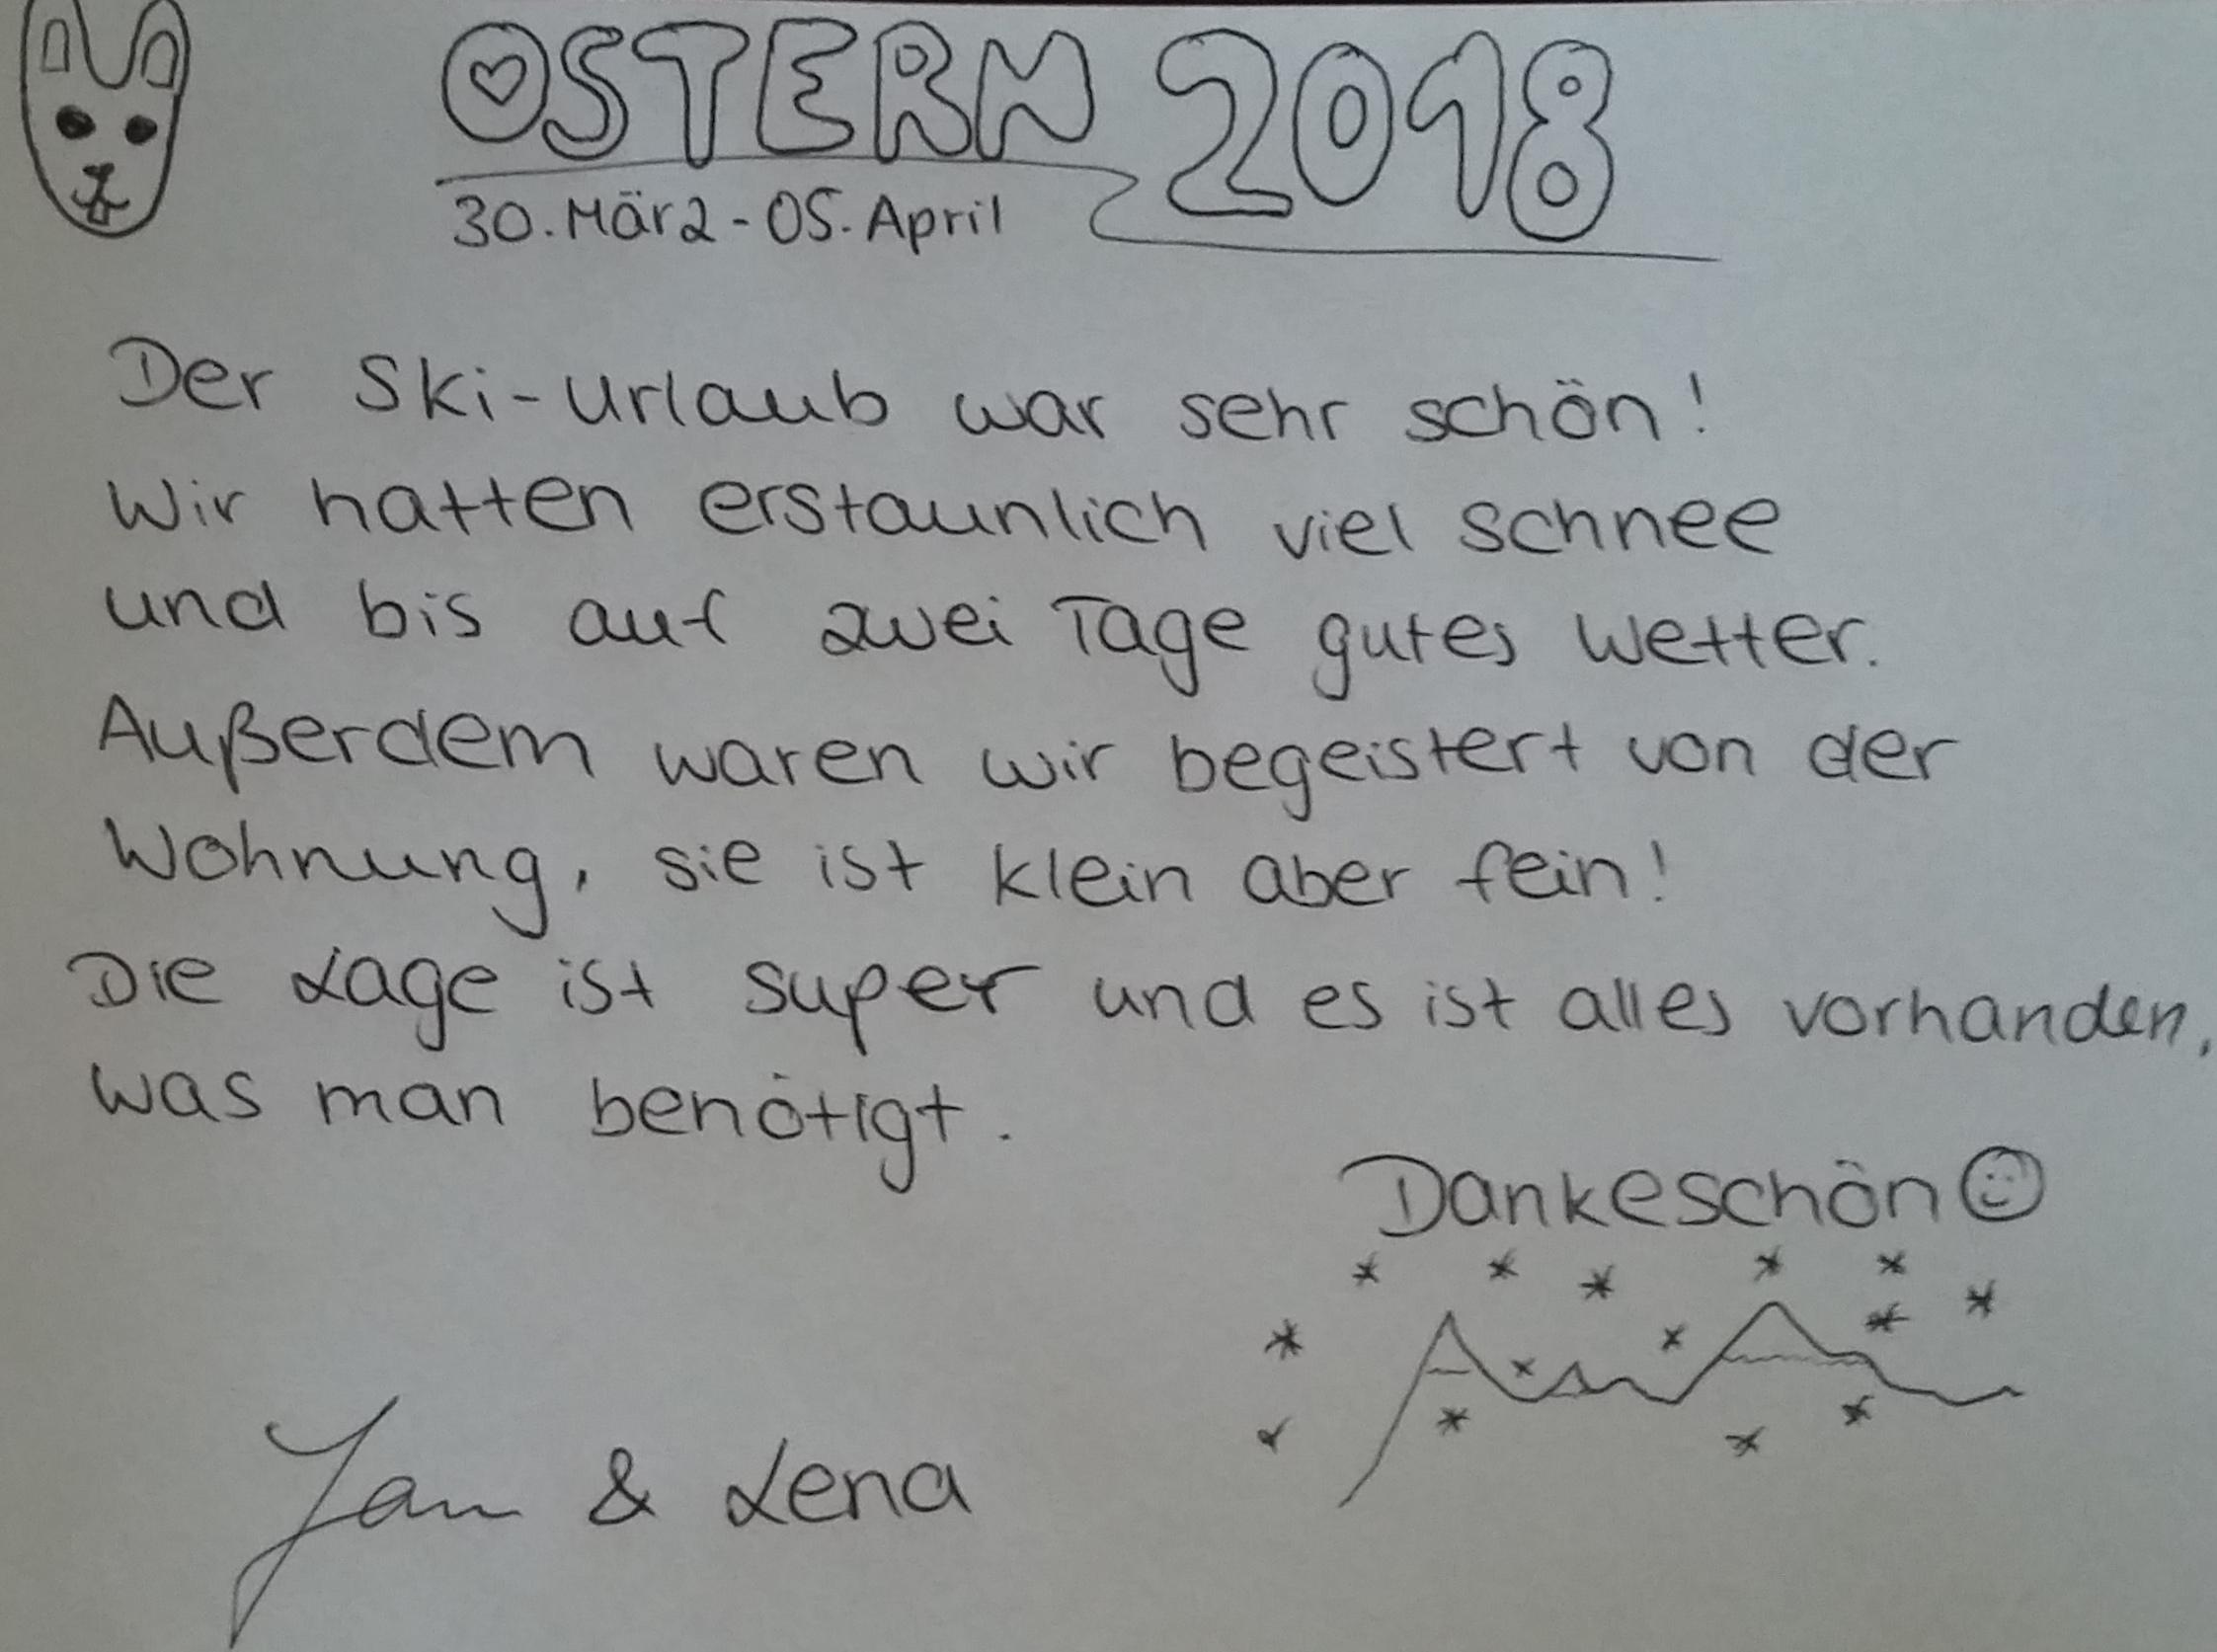 OSTERN 2018
30. März - 05. April
Der Ski-Urlaub war sehr schön!
Wir hatten erstaunlich viel Schnee
und bis auf zwei Tage gutes Wetter.
Außerdem waren wir begeistert von der
Wohnung, sie ist klein aber fein!
Die Lage ist super und es ist alles vorhanden,
was man benötigt.
Dankeschön ☺
Jan & Lena